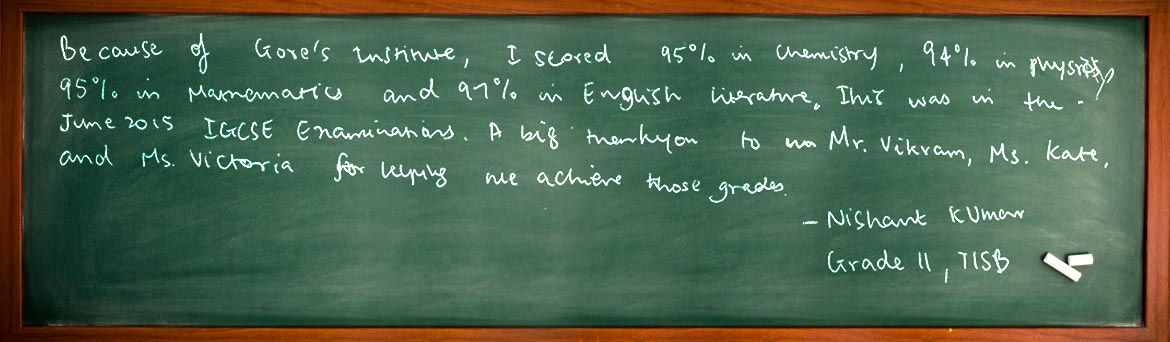 Because of Gore's Institute, I scored 95% in Chemistry, 94% in physics,
95% in Mathematics and 97% in English literature. This was in the
June 2015 IGCSE Examinations. A big thankyou to Mr. Vikram, Ms. Kate,
and Ms. Victoria for helping me achieve those grades.
- Nishant Kumar
Grade 11, TISB